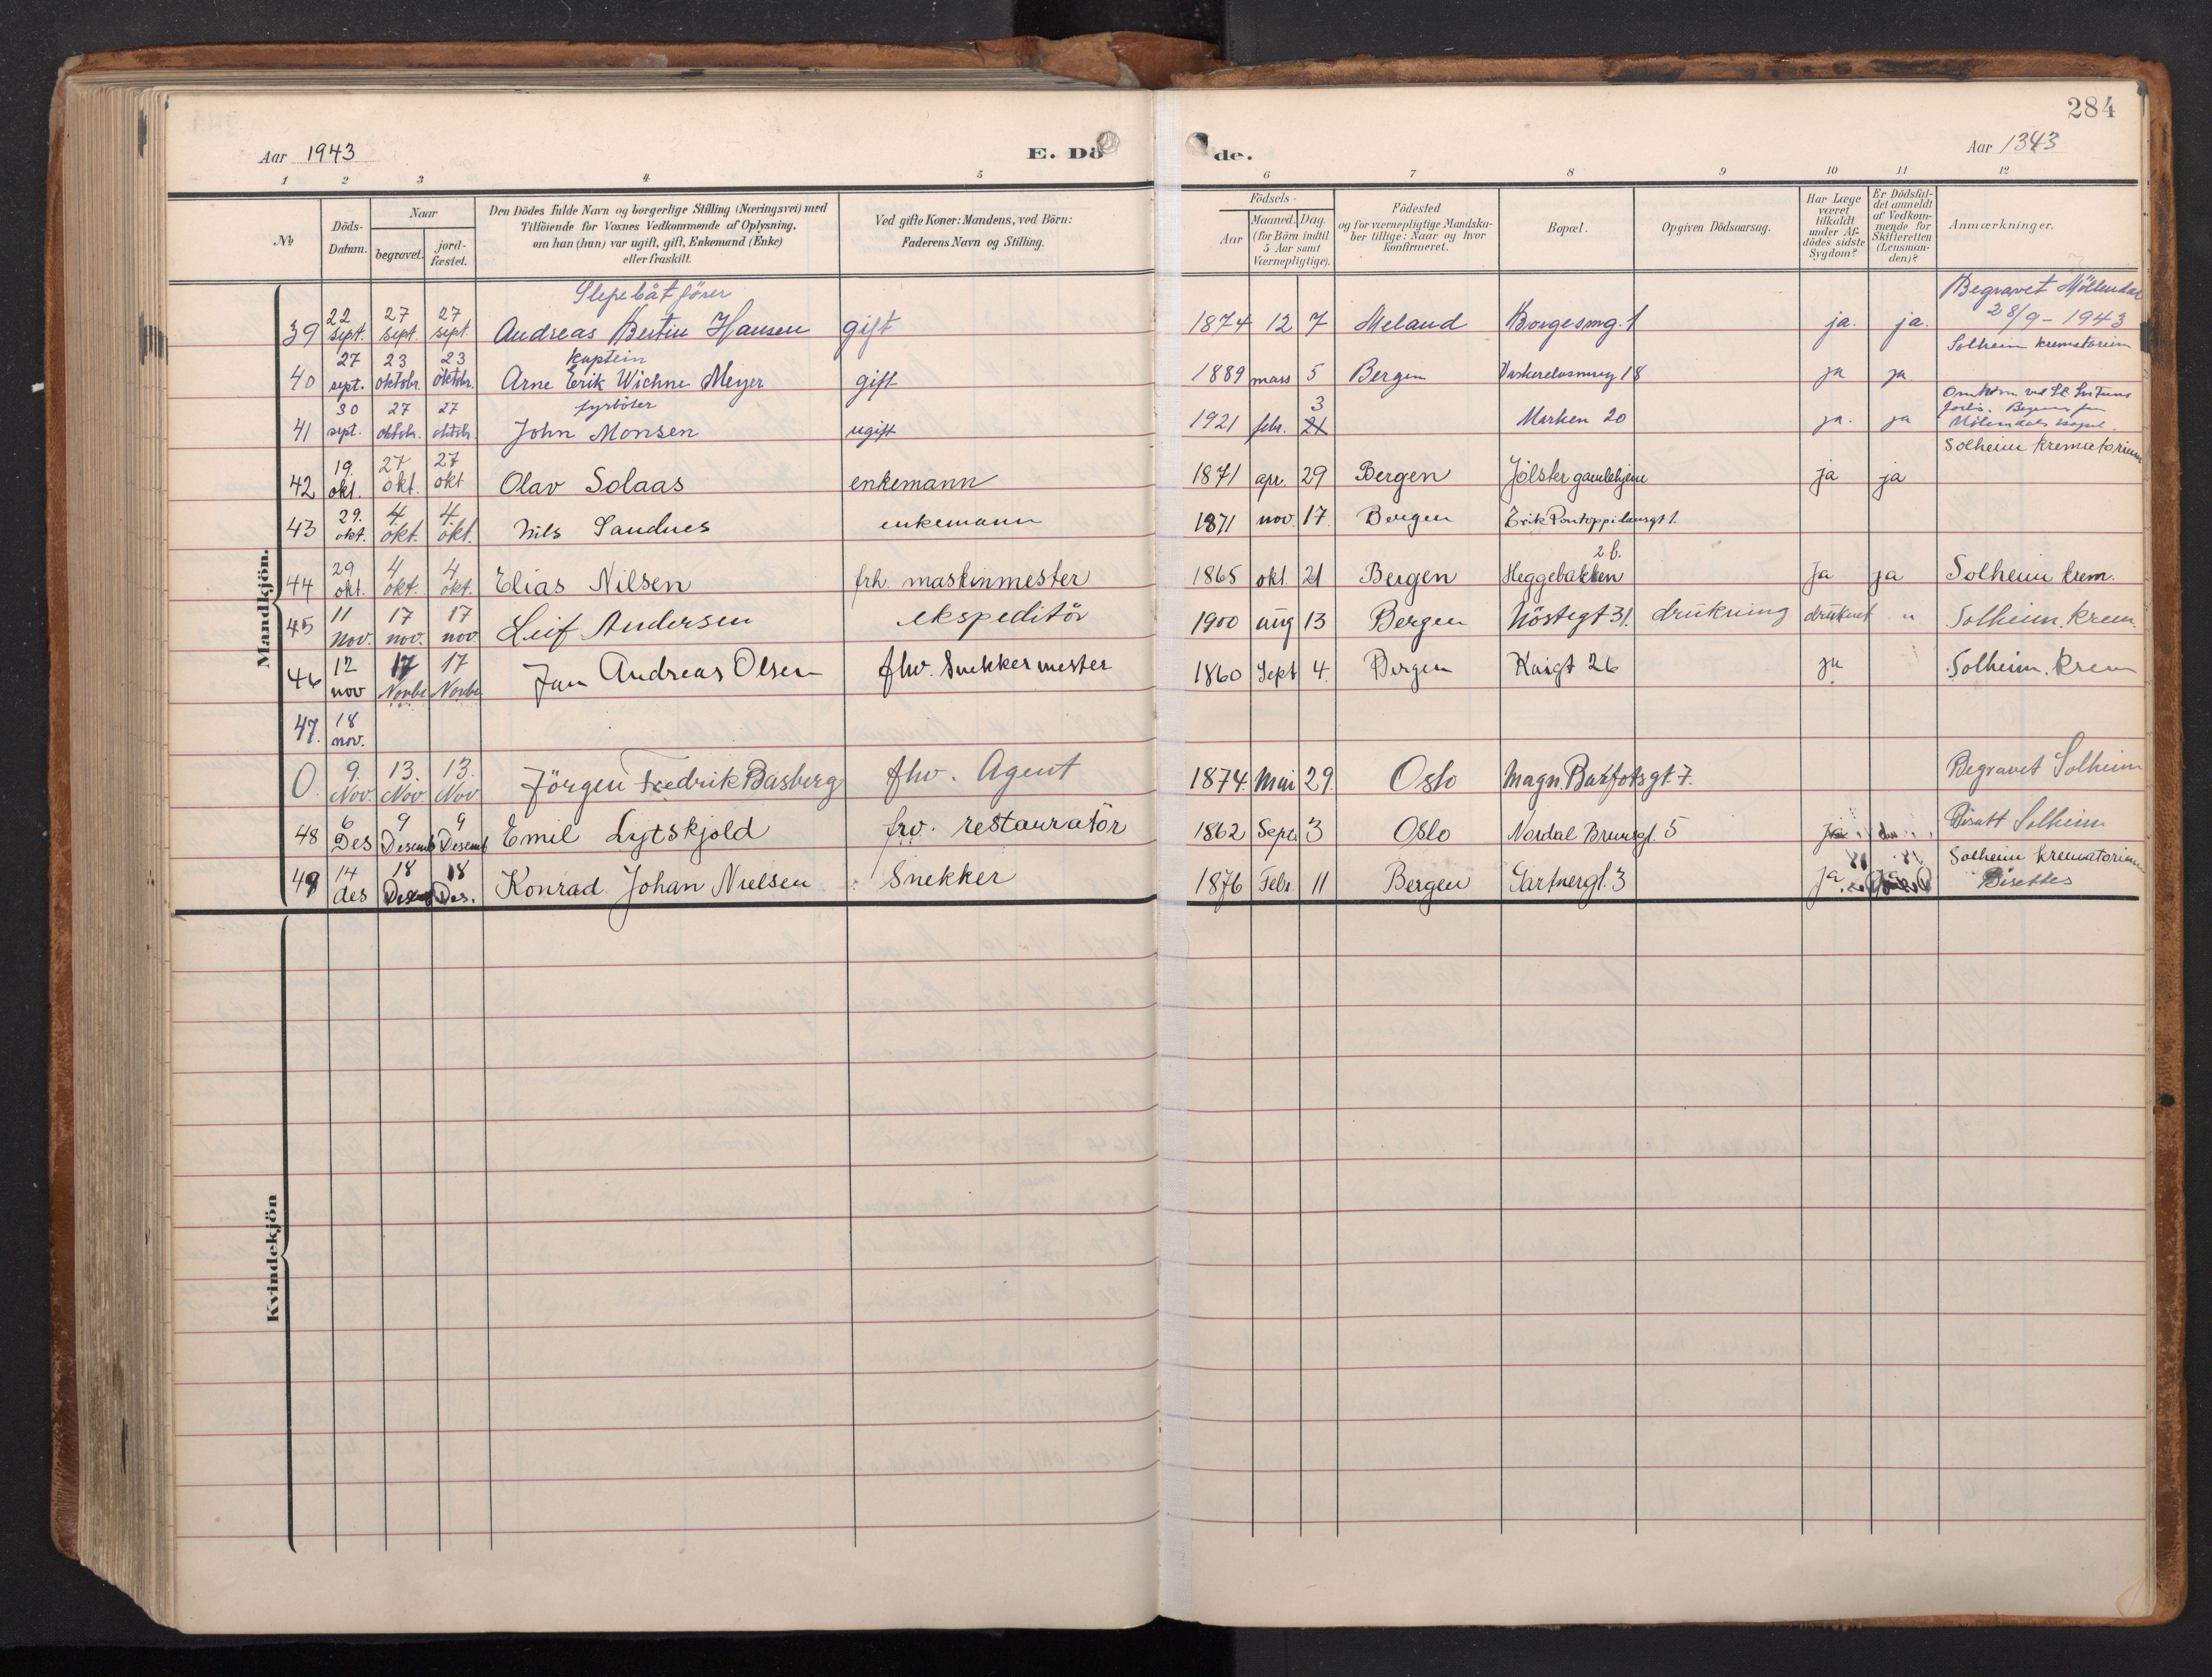 284
Aar 1943 E. Dö de. Aar 1343
1 2 3 4 5 6 7 8 9 10 11 12
№ Döds-Datum. Naar begravet. jord-fæstet. Den Dödes fulde Navn og borgerlige Stilling (Næringsvei) med Tilföiende for Voxnes Vedkommende af Oplysning, om han (hun) var ugift, gift, Enkemand (Enke) eller fraskilt. Ved gifte Koner: Mandens, ved Börn: Faderens Navn og Stilling. Födsels- Aar Maaned. Dag. (for Börn indtil 5 Aar samt Værnepligtige). Födested og for værnepligtige Mandskaber tillige: Naar og hvor konfirmeret. Bopæl. Opgiven Dödsaarsag. Har Læge været tilkaldt under Afdödes sidste Sygdom? Er Dödsfaldet anmeldt af Vedkommende for Skifteretten (Lensmanden)? Anmærkninger.
Mandkjön.
Slepebåtförer
39 22 sept. 27 sept. 27 sept. Andreas Bertin Hansen gift 1874 12 7 Meland ja. ja. Begravet Möllendal 28/9 - 1943
kaptein
40 27 sept. 23 oktobr. 23 oktobr. Arne Erik Wichne Meyer gift 1889 mars 5 Bergen ja ja. Solheim krematorium
fyrböter
41 30 sept. 27 oktobr. 27 oktobr. John Monsen ugift 1921 febr. 21 3 Marken 20 ja. ja
42 19. okt. 27 okt. 27 okt Olav Solaas enkemann 1871 apr. 29 Bergen Jölster gamlehjem ja ja Solheim krematorium
43 29. okt. 4 okt. 4. okt. Nils Sandnes enkemann 1871 nov. 17. Bergen Erik Pontoppidansgt 1.
44 29 okt. 4 okt. 4 okt. Elias Nilsen frh. maskinmester 1865 okt. 21 Bergen Heggebakken 2 b. Ja ja Solheim krem.
45 11 nov. 17 nov. 17 nov Leif Andersen ekspeditör 1900 aug 13 Bergen Nöstegt 31. drukning druknet " Solheim. krem.
46 12 nov 17 Novbr 17 Novbr Jan Andreas Olsen fhv. Snekkermester 1860 Sept 4. Bergen Kaigt 26 ja Solheim. krem
47. 18 nov.
0. 9. Nov. 13. Nov. 13. Nov. Jörgen Fredrik Basberg fhv. Agent 1874. Mai 29. Oslo Magn. Barfotsgt. 7. Begravet Solheim
48 6 Des 9 Desemb 9 Desemb Emil Lytskjold frv. restauratör 1862 Sept. 3 Oslo Nordal Brunsgt. 5 Ja Bisatt Solheim
49 14 des 18 Des 18 Des. Konrad Johan Nielsen Snekker 1876 Febr. 11 Bergen Gartnergt. 3 Ja Solheim krematorium Bisettes
Kvindekjön